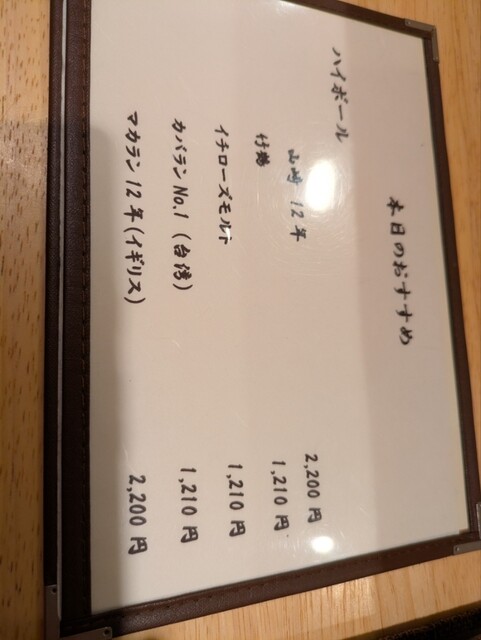 本日のおすすめ
ハイボール
山崎 12年 2,200円
竹鶴 1,210円
イチローズモルト 1,210円
カバラン No.1 (台湾) 1,210円
マカラン 12年(イギリス) 2,200円